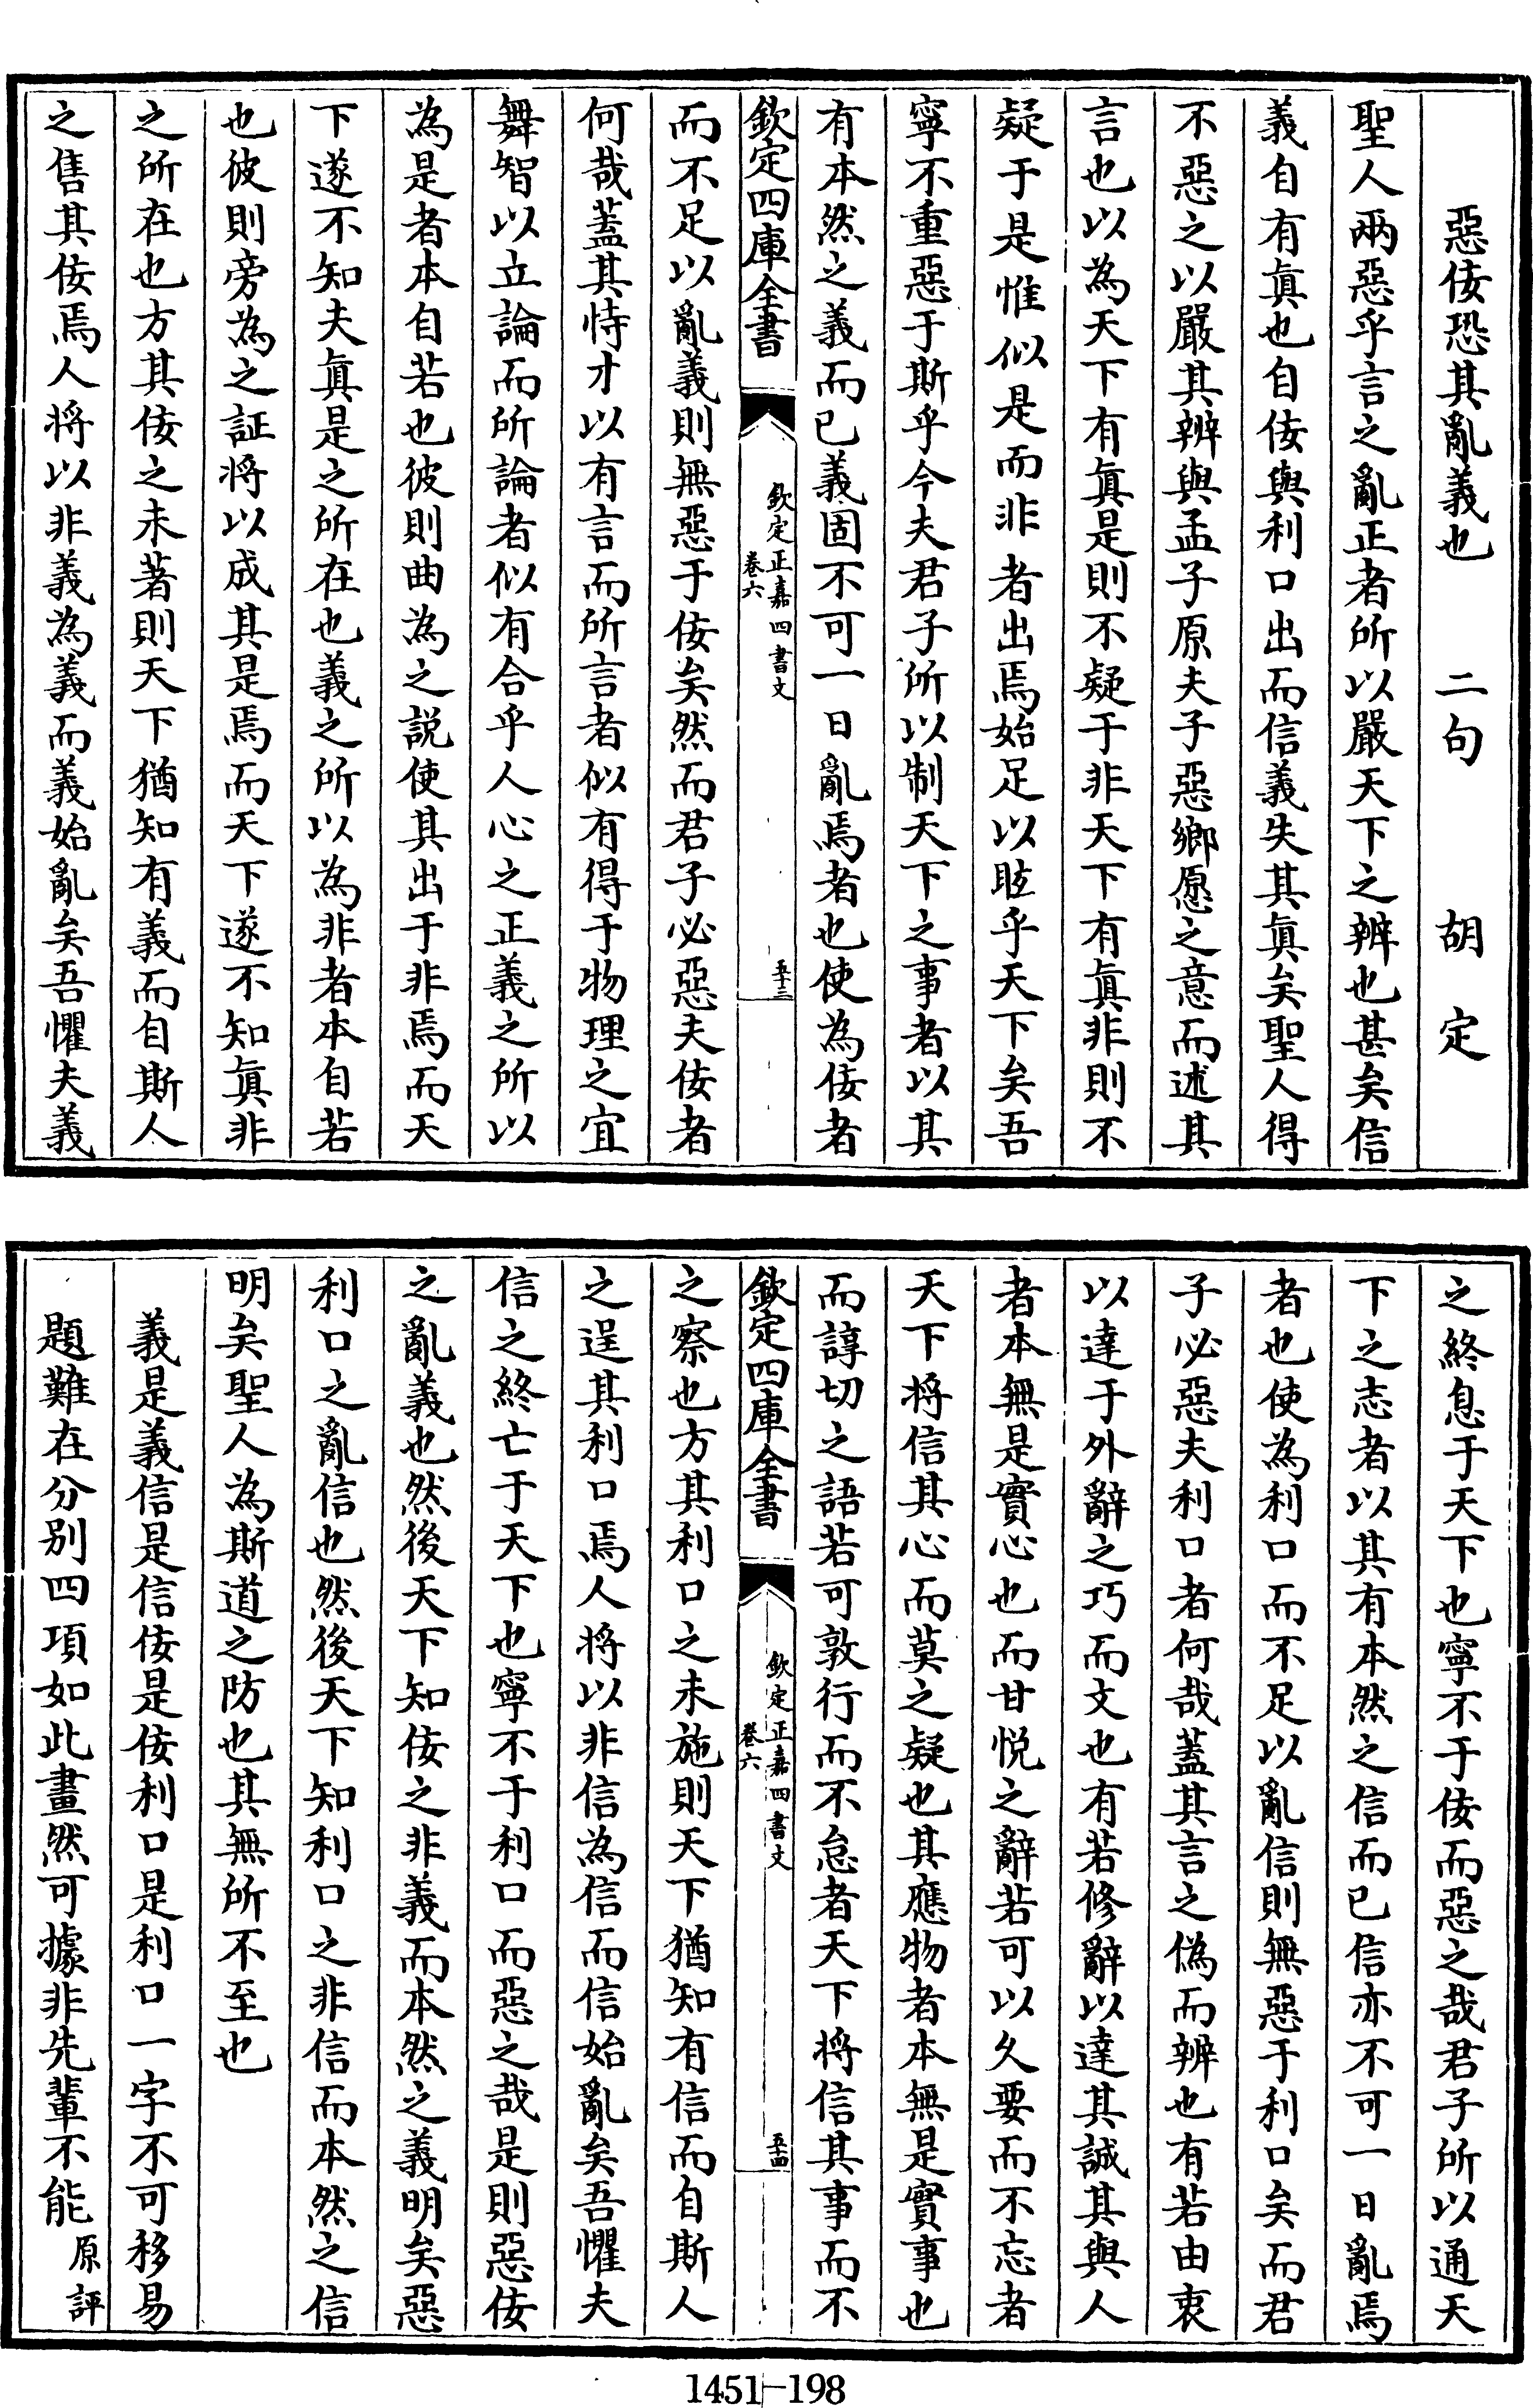 惡佞恐其亂義也　二句　胡定
聖人兩惡乎言之亂正者所以嚴天下之辨也甚矣信
義自有眞也自佞與利口出而信義失其眞矣聖人得
不惡之以嚴其辨與孟子原夫子惡鄉愿之意而述其
言也以為天下有眞是則不疑于非天下有眞非則不
疑于是惟似是而非者出焉始足以眩乎天下矣吾
寧不重惡于斯乎今夫君子所以制天下之事者以其
有本然之義而已義固不可一日亂焉者也使為佞者
欽定四庫全書
欽定正嘉四書文
卷六
五十三
而不足以亂義則無惡于佞矣然而君子必惡夫佞者
何哉蓋其恃才以有言而所言者似有得于物理之宜
舞智以立論而所論者似有合乎人心之正義之所以
為是者本自若也彼則曲為之說使其出于非焉而天
下遂不知夫眞是之所在也義之所以為非者本自若
也彼則旁為之証將以成其是焉而天下遂不知眞非
之所在也方其佞之未著則天下猶知有義而自斯人
之售其佞焉人將以非義為義而義始亂矣吾懼夫義
之終息于天下也寧不于佞而惡之哉君子所以通天
下之志者以其有本然之信而已信亦不可一日亂焉
者也使為利口而不足以亂信則無惡于利口矣而君
子必惡夫利口者何哉蓋其言之偽而辨也有若由衷
以達于外辭之巧而文也有若修辭以達其誠其與人
者本無是實心也而甘悅之辭若可以久要而不忘者
天下將信其心而莫之疑也其應物者本無是實事也
而諄切之語若可敦行而不怠者天下將信其事而不
欽定四庫全書
欽定正嘉四書文
卷六
五十四
之察也方其利口之未施則天下猶知有信而自斯人
之逞其利口焉人將以非信為信而信始亂矣吾懼夫
信之終亡于天下也寧不于利口而惡之哉是則惡佞
之亂義也然後天下知佞之非義而本然之義明矣惡
利口之亂信也然後天下知利口之非信而本然之信
明矣聖人為斯道之防也其無所不至也
義是義信是信佞是佞利口是利口一字不可移易
題難在分別四項如此畫然可據非先輩不能原評
1451—198